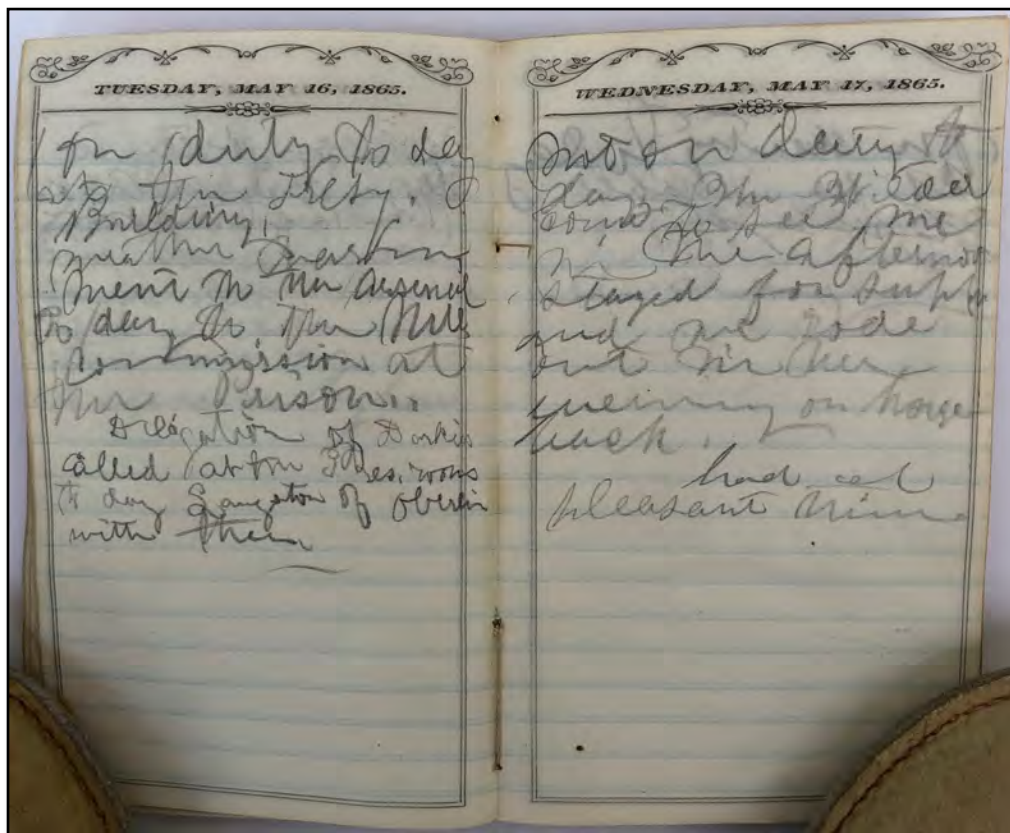 TUESDAY, MAY 16, 1865.
on duty to day
at the Tresy.
Building.
ment to the Arsenal
to day to the Mil
commission at
the Prison.
Delegation of Darkies
called at the Pres. rooms
to day Langston of Oberlin
with them
WEDNESDAY, MAY 17, 1865.
not on duty to
day.
come to see me
in the afternoon
stayed for supper
and we rode
out in the
evening on horse
back.
had a
pleasant time